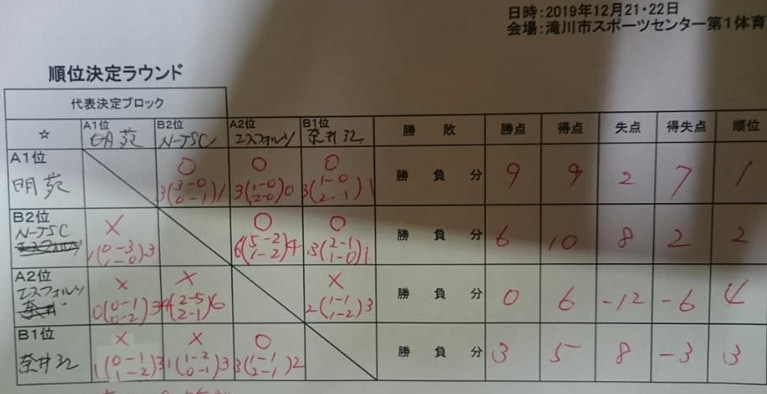 日時:2019年12月21・22日
会場:滝川市スポーツセンター第1体育
順位決定ラウンド
代表決定ブロック
☆ A1位 明苑 B2位 N-JSC A2位 エスフォルソ B1位 奈井江 勝 敗 勝点 得点 失点 得失点 順位
A1位 ○ ○ ○
明苑 3(3-0 0-1)1 3(1-0 2-0)0 3(1-0 2-1)1 勝 負 分 9 9 2 7 1
B2位 × ○ ○
N-JSC 1(0-3 1-0)3 6(5-2 1-2)4 3(2-1 1-0)1 勝 負 分 6 10 8 2 2
A2位 × × ×
エスフォルソ 0(0-1 0-2)3 4(2-5 2-1)6 2(1-1 1-2)3 勝 負 分 0 6 -12 -6 4
B1位 × × ○
奈井江 1(0-1 1-2)3 1(1-2 0-1)3 3(1-1 2-1)2 勝 負 分 3 5 8 -3 3